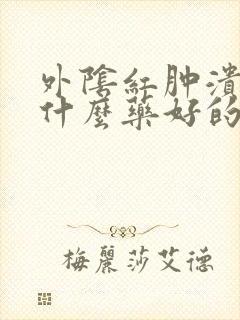 外陰紅肿潰
什麼藥好的
梅麗莎艾德